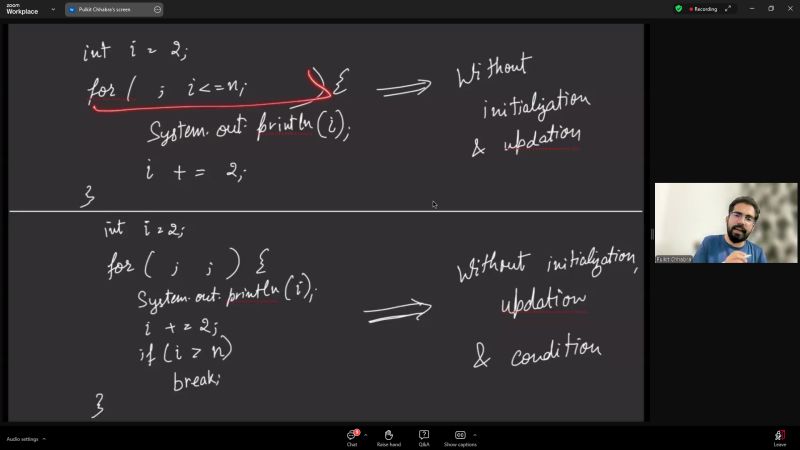 zoom
Workplace
Pulkit Chhabra's screen
Recording
int i = 2;
for ( ; i<=n; ) {
System.out.println(i);
i += 2;
}
Without
initialization
& updation
int i=2;
for ( ; ; ) {
System.out.println(i);
i += 2;
if (i > n)
break;
}
Without initialization,
updation
& condition
Pulkit Chhabra
Audio settings
Chat
Raise hand
Q&A
Show captions
Leave